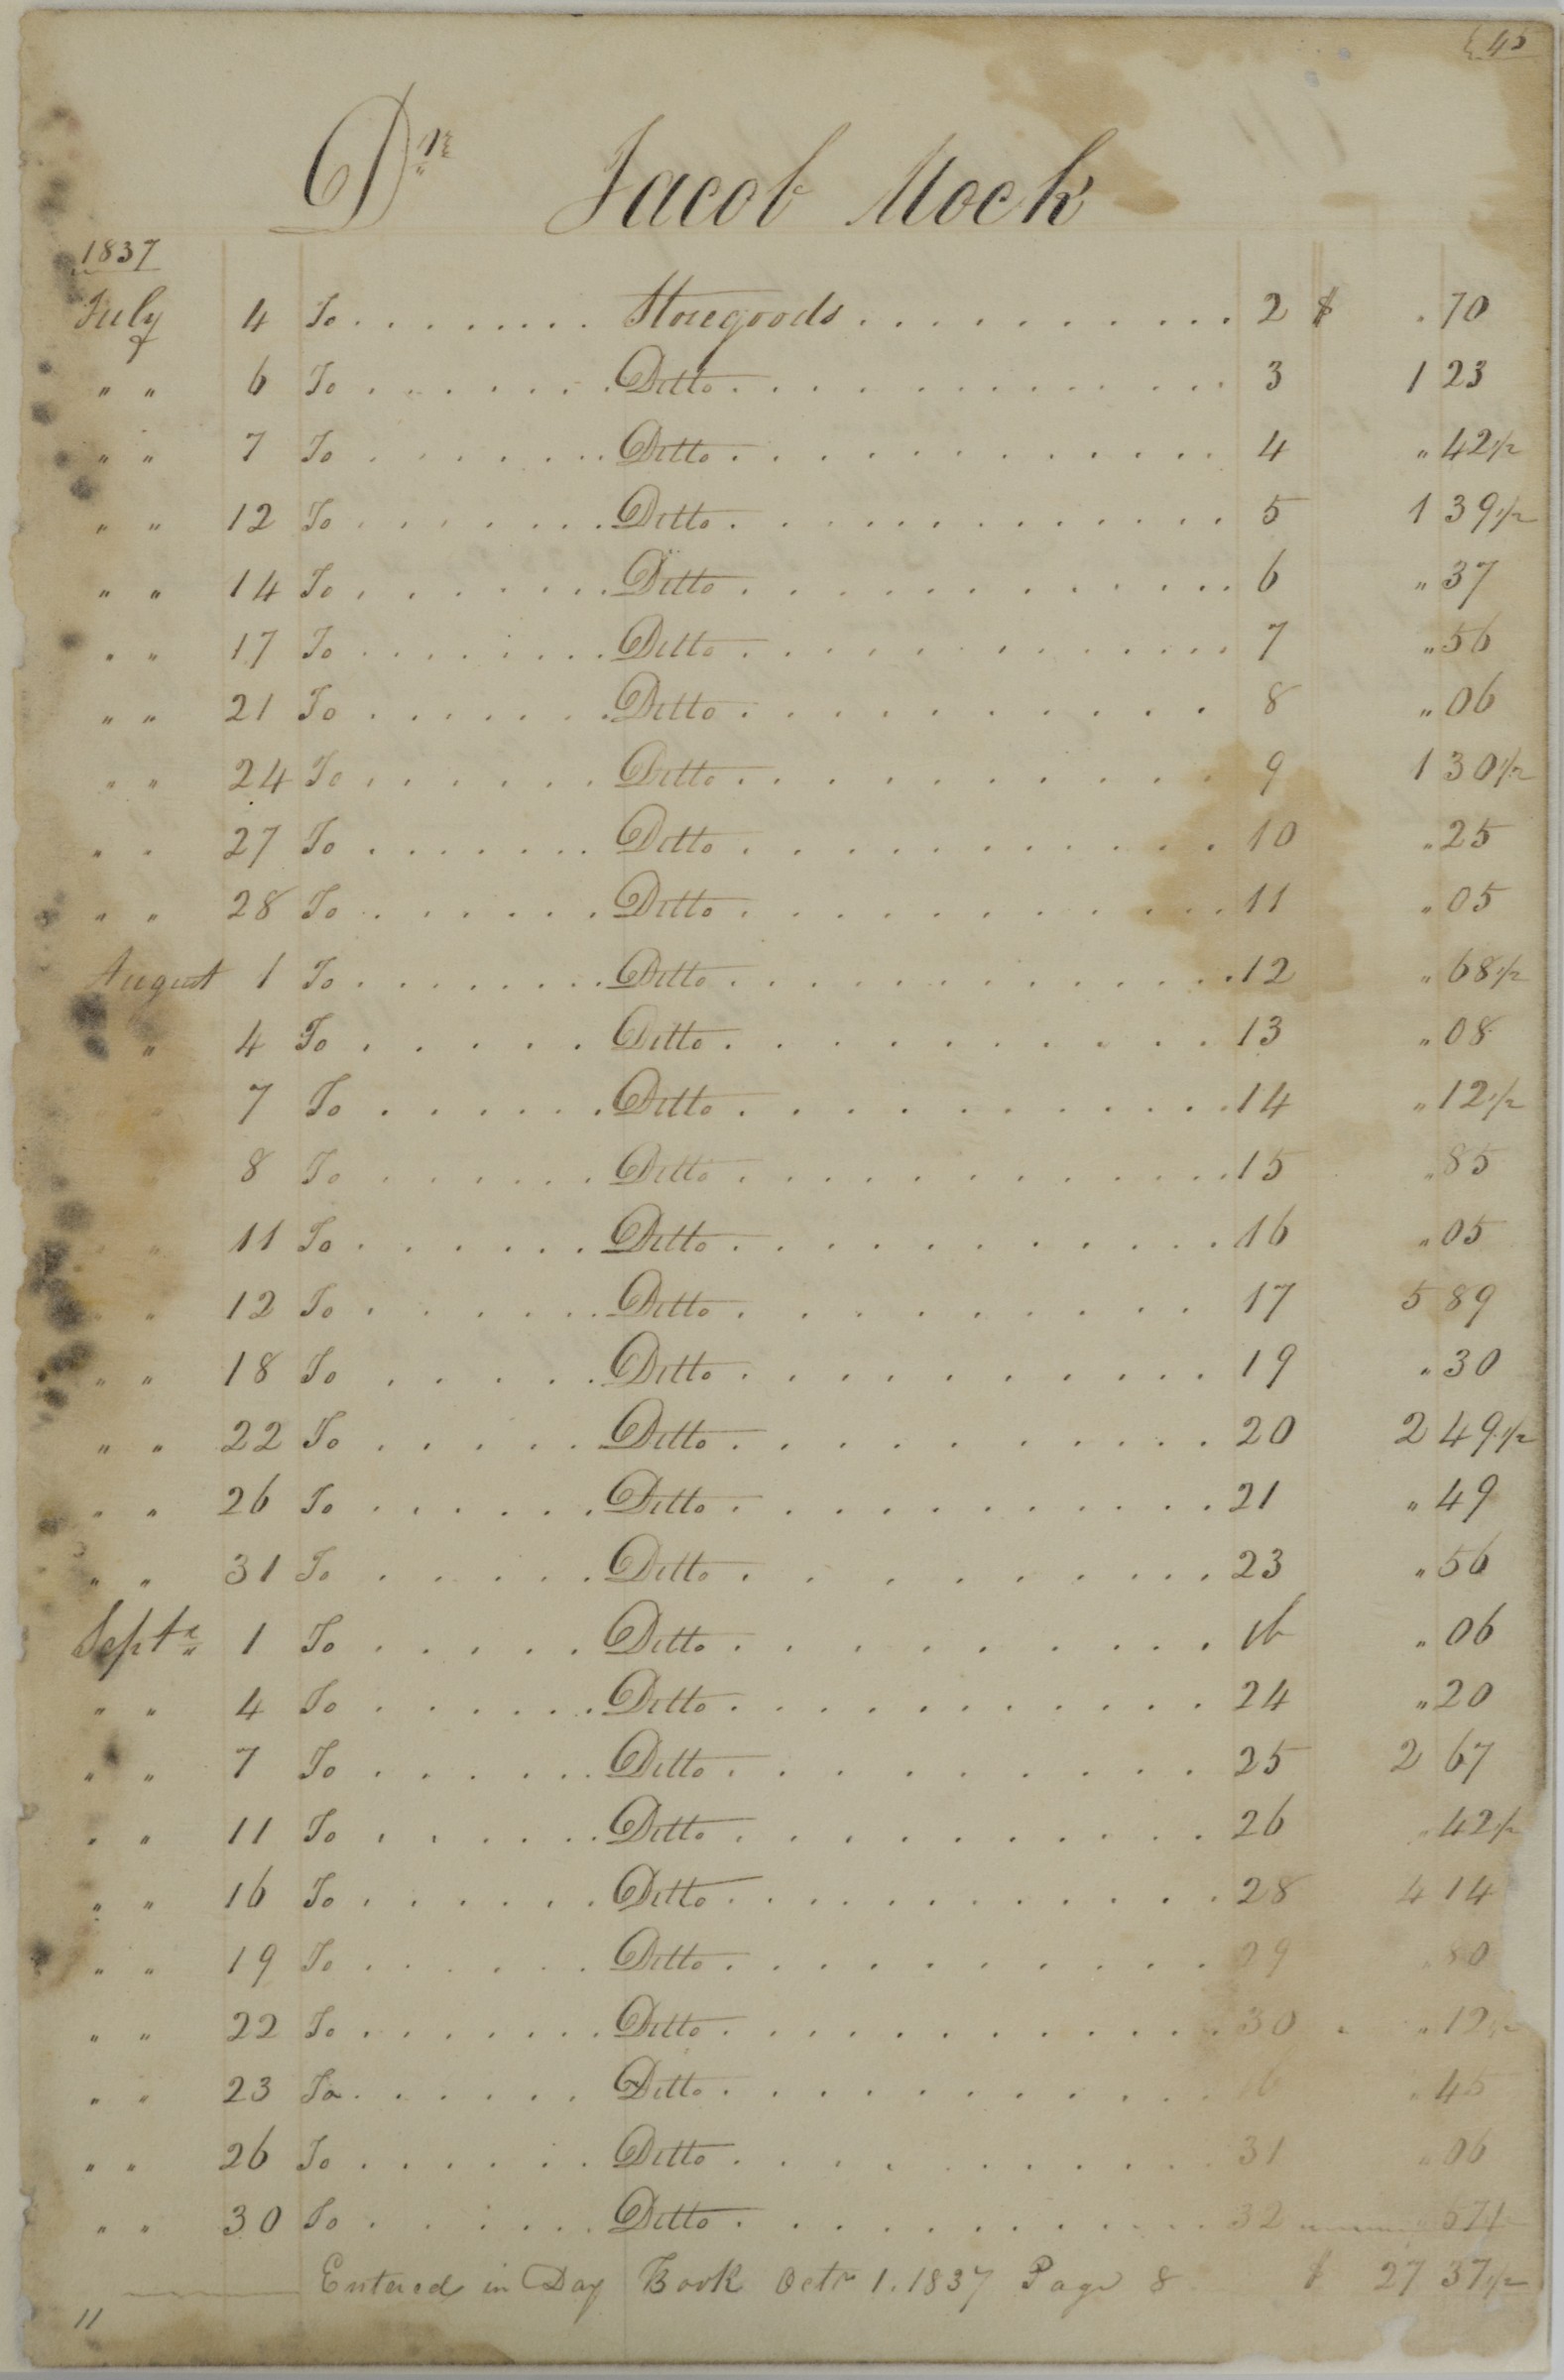 45
Dr Jacob Mock
1837
July 4 To . . . . . . . . Storegoods . . . . . . . . . . . 2 $ " 70
" " 6 To . . . . . . . Ditto . . . . . . . . . . . . 3 1 23
" " 7 To . . . . . . . Ditto . . . . . . . . . . . . 4 " 42 1/2
" " 12 To . . . . . . . Ditto . . . . . . . . . . . . 5 1 39 1/2
" " 14 To . . . . . . . Ditto . . . . . . . . . . . . 6 " 37
" " 17 To . . . . . . . . Ditto . . . . . . . . . . . . 7 " 56
" " 21 To . . . . . . . Ditto . . . . . . . . . . 8 " 06
" " 24 To . . . . . . Ditto . . . . . . . . . . 9 1 30 1/2
" " 27 To . . . . . . . Ditto . . . . . . . . . . . 10 " 25
" " 28 To . . . . . . Ditto . . . . . . . . . . . 11 " 05
August 1 To . . . . . . . . Ditto . . . . . . . . . . . . 12 " 68 1/2
" 4 To . . . . . Ditto . . . . . . . . . . . 13 " 08
7 To . . . . . . Ditto . . . . . . . . . . . 14 " 12 1/2
8 To . . . . . . Ditto . . . . . . . . . . . 15 " 85
" 11 To . . . . . . Ditto . . . . . . . . . . . 16 " 05
" " 12 To . . . . . . Ditto . . . . . . . . . . 17 5 89
" " 18 To . . . . . Ditto . . . . . . . . . . . 19 " 30
" " 22 To . . . . . Ditto . . . . . . . . . . 20 2 49 1/2
" " 26 To . . . . . . Ditto . . . . . . . . . . . 21 " 49
" " 31 To . . . . . Ditto . . . . . . . . . . 23 " 56
Septr 1 To . . . . . Ditto . . . . . . . . . . ib " 06
" " 4 To . . . . . . Ditto . . . . . . . . . . . 24 " 20
" " 7 To . . . . . . Ditto . . . . . . . . . . 25 2 67
" " 11 To . . . . . . Ditto . . . . . . . . . . . 26 " 42 1/2
" " 16 To . . . . . . Ditto . . . . . . . . . . . 28 4 14
" " 19 To . . . . . . Ditto . . . . . . . . . . . 29 " 80
" " 22 To . . . . . . . Ditto . . . . . . . . . . . . 30 " 12 1/2
" " 23 To . . . . . . Ditto . . . . . . . . . . . ib " 45
" " 26 To . . . . . . Ditto . . . . . . . . . . . 31 " 06
" " 30 To . . . . . . Ditto . . . . . . . . . . . 32
Entered in Day Book Octr 1. 1837 Page 8 $ 27 37 1/2
11